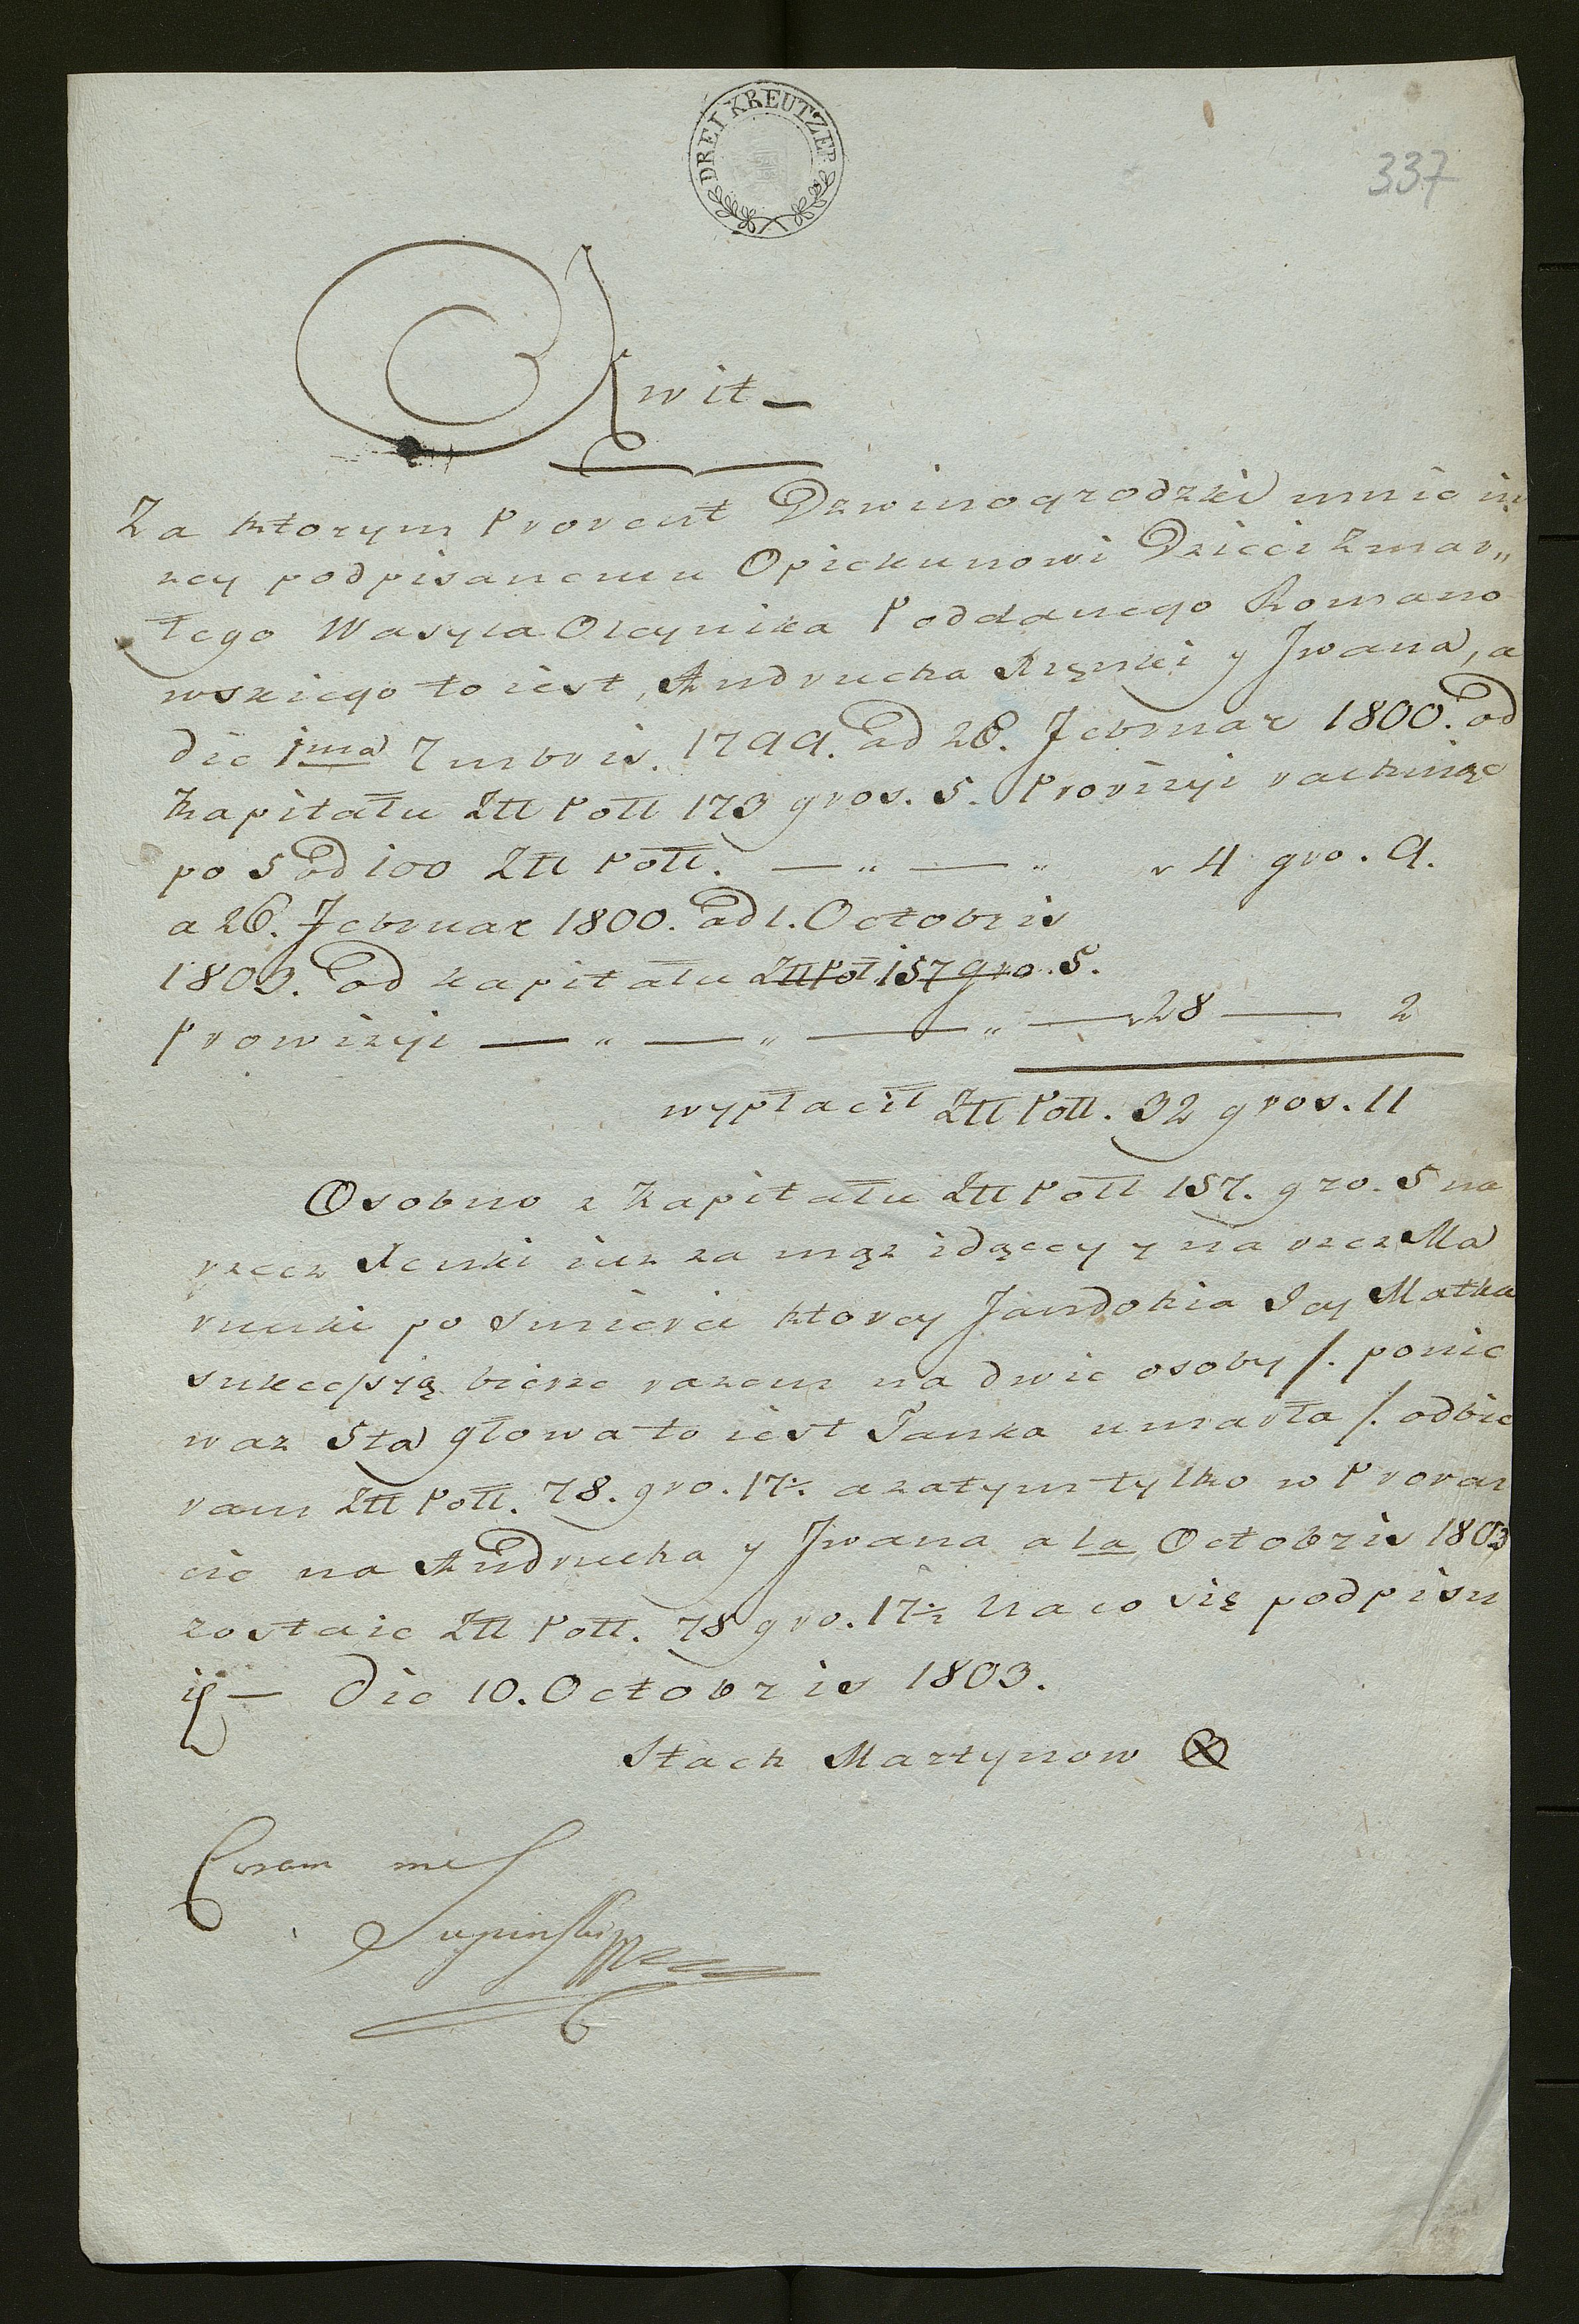 DREI KREUTZER
337
Kwit
Za ktorym Provent Dzwinogrodzki mnie ni
zey podpisanemu Opiekunowi Dzieci Zmar„
łego Wasyla Oleynika Poddanego Romano
wskiego to iest, Andrucha Rręnki y Jwana, a
die 1ma 7mbris. 1799. ad 26. Februar 1800. od
Kapitału Ztt Pott 173 gros. 5. Provizyi rachuiąc
po 5 od 100 Ztt Pott. — „ — „ 4 gro. 9.
a 26. Februar 1800. ad 1. Octobris
1803. od kapitału Ztt Pot 157 gro. 5.
Prowizyi — „ — „ — „ — 28 — 2
wypłacił Ztt Pott. 32 gros. 11
Osobno z Kapitału Ztt Pott 157. gro. 5 na
rzecz Renki iuz za mąz idącey y na rzecz Ma
runki po Smierci ktorey Jandokia Jey Matka
sukcessyą bierze razem na dwie osoby /. ponie
waz 5ta głowa to iest Tanka umarła /. odbie
ram Ztt Pott. 78. gro. 17½ a zatym tylko w Proven
cie na Andrucha y Jwana a 1a Octobris 1803
zostaie Ztt Pott. 78 gro. 17½ Na co się podpisu
ię — Die 10. Octobris 1803.
Stach Martynow
Coram me
Lupinski mp